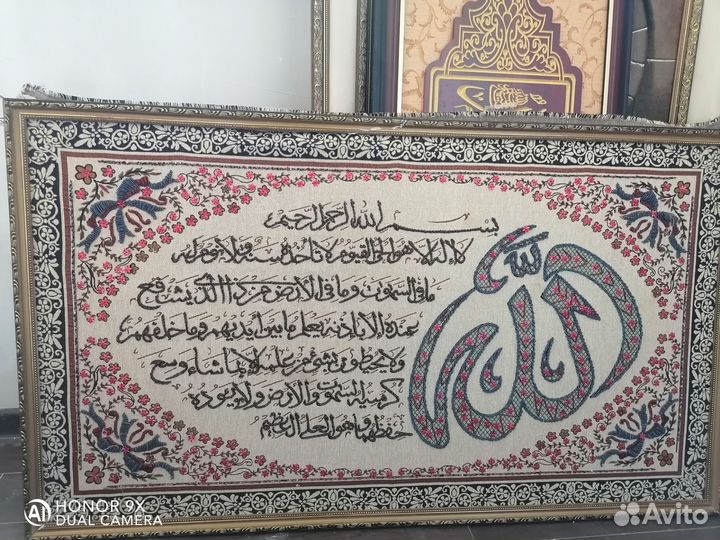 بسم الله الرحمن الرحيم
الله لا اله الا هو الحي القيوم لا تأخذه سنة ولا نوم له
ما في السموت وما في الارض من ذا الذي يشفع
عنده الا باذنه يعلم ما بين ايديهم وما خلفهم
ولا يحيطون بشيء من علمه الا بما شاء وسع
كرسيه السموت والارض ولا يؤده
حفظهما وهو العلي العظيم
الله
HONOR 9X
DUAL CAMERA
Avito